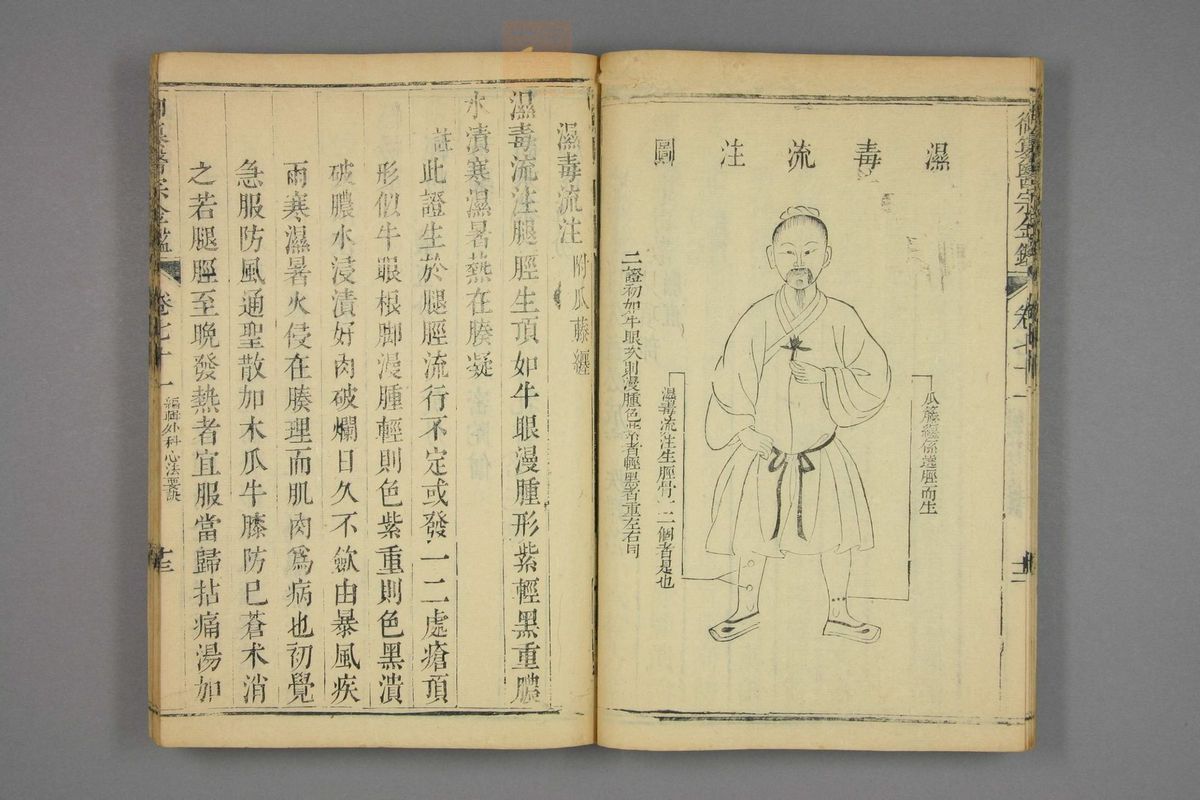 濕毒流注圖
瓜籐纏係遶脛而生
濕毒流注生脛骨一二個者是也
二證初如牛眼次則漫腫色紫者輕黑者重左右同
御纂醫宗金鑑
卷七十一
濕毒流注附瓜藤纏
濕毒流注腿脛生頂如牛眼漫腫形紫輕黑重膿
水漬寒濕暑熱在腠凝
註此證生於腿脛流行不定或發一二處瘡頂
形似牛眼根脚漫腫輕則色紫重則色黑潰
破膿水浸漬好肉破爛日久不斂由暴風疾
雨寒濕暑火侵在腠理而肌肉為病也初覺
急服防風通聖散加木瓜牛膝防已蒼朮消
之若腿脛至晚發熱者宜服當歸拈痛湯如
卷七十一
編輯外科心法要訣
十三